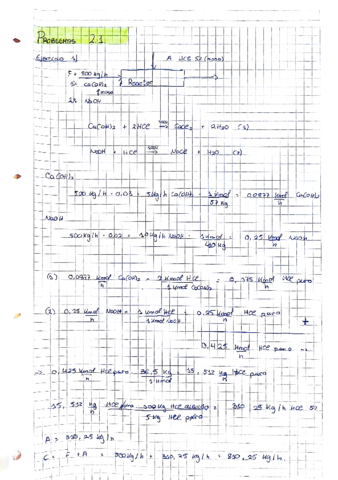 PROBLEMAS 2.1
Ejercicio 1)
A HCl 5% (masa)
F = 500 kg/h
Reactor
Ca(OH)₂
2% NaOH
Ca(OH)₂ + 2HCl → CaCl₂ + 2H₂O (1)
NaOH + HCl → NaCl + H₂O (2)
Ca(OH)₂
500 kg/h · 0.01 = 5 kg/h Ca(OH)₂ · 1 kmol / 57 kg = 0.0877 kmol/h Ca(OH)₂
NaOH
500 kg/h · 0.02 = 10 kg/h NaOH · 1 kmol / 40 kg = 0,25 kmol/h NaOH
(1) 0.0877 kmol/h Ca(OH)₂ · 2 kmol HCl / 1 kmol Ca(OH)₂ = 0,175 kmol/h HCl puro
(2) 0,25 kmol/h NaOH · 1 kmol HCl / 1 kmol NaOH = 0.25 kmol/h HCl puro
+
0,425 kmol/h HCl puro ⇒
⇒ 0,425 kmol/h HCl puro · 36,5 kg / 1 kmol = 15,512 kg/h HCl puro
15,512 kg/h HCl puro · 100 kg HCl / 5 kg HCl puro = 310,25 kg/h HCl 5%
A = 310,25 kg/h
C = F + A = 500 kg/h + 310,25 kg/h = 810,25 kg/h.